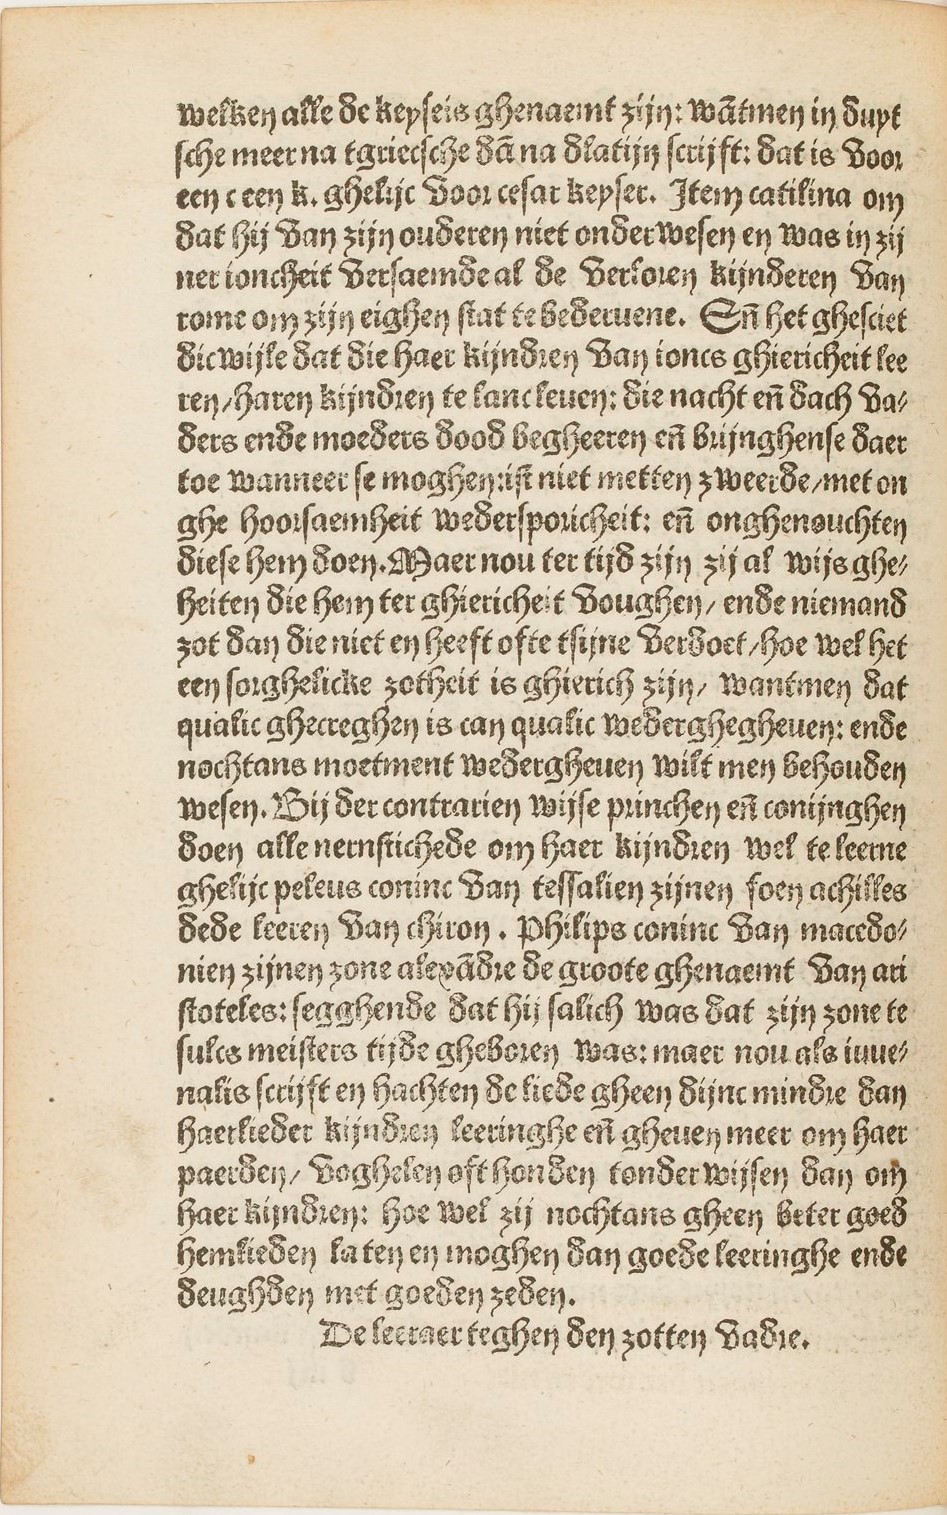 welken alle de keyseis ghenaemt zijn: wãtmen in duyt
sche meer na tgriecsche dã na dlatijn scrijft: dat is voor
een c een k. ghelijc voor cesar keyser. Item catilina om
dat hij van zijn ouderen niet onderwesen en was in zij
ner ioncheit versaemde al de verloren kijnderen van
rome om zijn eighen stat te bederuene. Eñ het ghesciet
dicwijle dat die haer kijndren van ioncs ghiericheit lee
ren/haren kijndren te lanc leuen: die nacht eñ dach va⸗
ders ende moeders dood begheeren eñ brijnghense daer
toe wanneer se moghen: ist niet metten zweerde/met on
ghe hoorsaemheit wedersporicheit: eñ onghenouchten
diese hem doen. Maer nou ter tijd zijn zij al wijs ghe⸗
heiten die hem ter ghiericheit voughen/ ende niemand
zot dan die niet en heeft ofte tsijne verdoet/hoe wel het
een sorghelicke zotheit is ghierich zijn/ wantmen dat
qualic ghecreghen is can qualic wederghegheuen: ende
nochtans moetment wedergheuen wilt men behouden
wesen. Bij der contrarien wijse princhen eñ conijnghen
doen alle nernstichede om haer kijndren wel te leerne
ghelijc peleus coninc van tessalien zijnen soen achilles
dede leeren van chiron. Philips coninc van macedo⸗
nien zijnen zone alexãdre de groote ghenaemt van ari
stoteles: segghende dat hij salich was dat zijn zone te
sulcs meisters tijde gheboren was: maer nou als iuue⸗
nalis scrijft en hachten de liede gheen dijnc mindre dan
haerlieder kijndren leeringhe eñ gheuen meer om haer
paerden/ voghelen oft honden tonderwijsen dan om
haer kijndren: hoe wel zij nochtans gheen beter goed
hemlieden laten en moghen dan goede leeringhe ende
deughden met goeden zeden.
De leeraer teghen den zotten vadre.